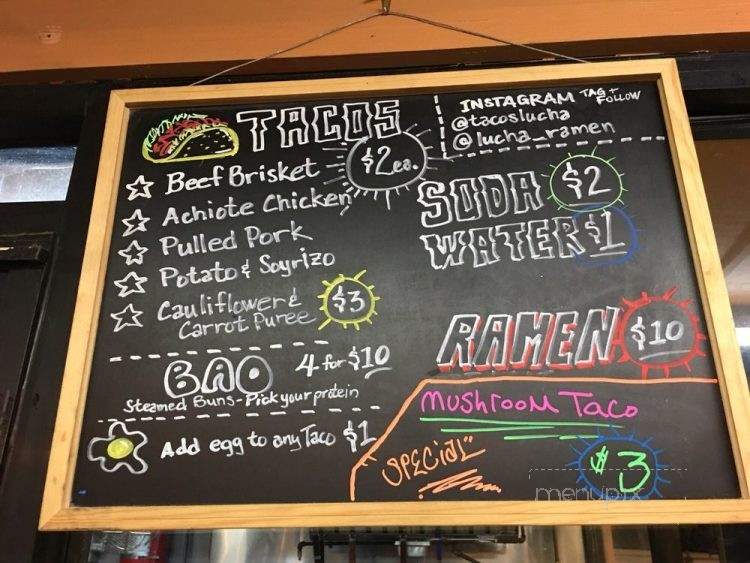 TACOS
$2 ea.
Beef Brisket
Achiote Chicken
Pulled Pork
Potato & Soyrizo
Cauliflower &
Carrot Puree $3
BAO 4 for $10
Steamed Buns - Pick your protein
Add egg to any Taco $1
INSTAGRAM TAG + FOLLOW
@tacoslucha
@lucha_ramen
SODA $2
WATER $1
RAMEN $10
Mushroom Taco
SPECIAL"
$3
menupix